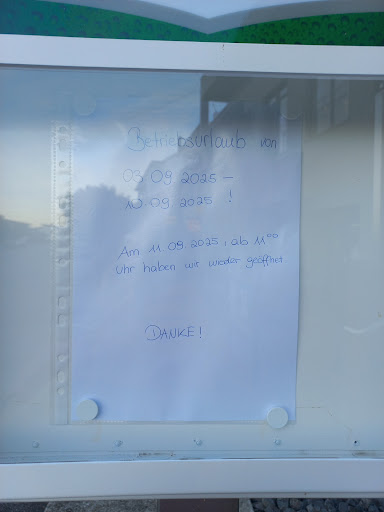 Betriebsurlaub von
03.09.2025 –
10.09.2025 !
Am 11.09.2025, ab 11⁰⁰
Uhr haben wir wieder geöffnet
DANKE!